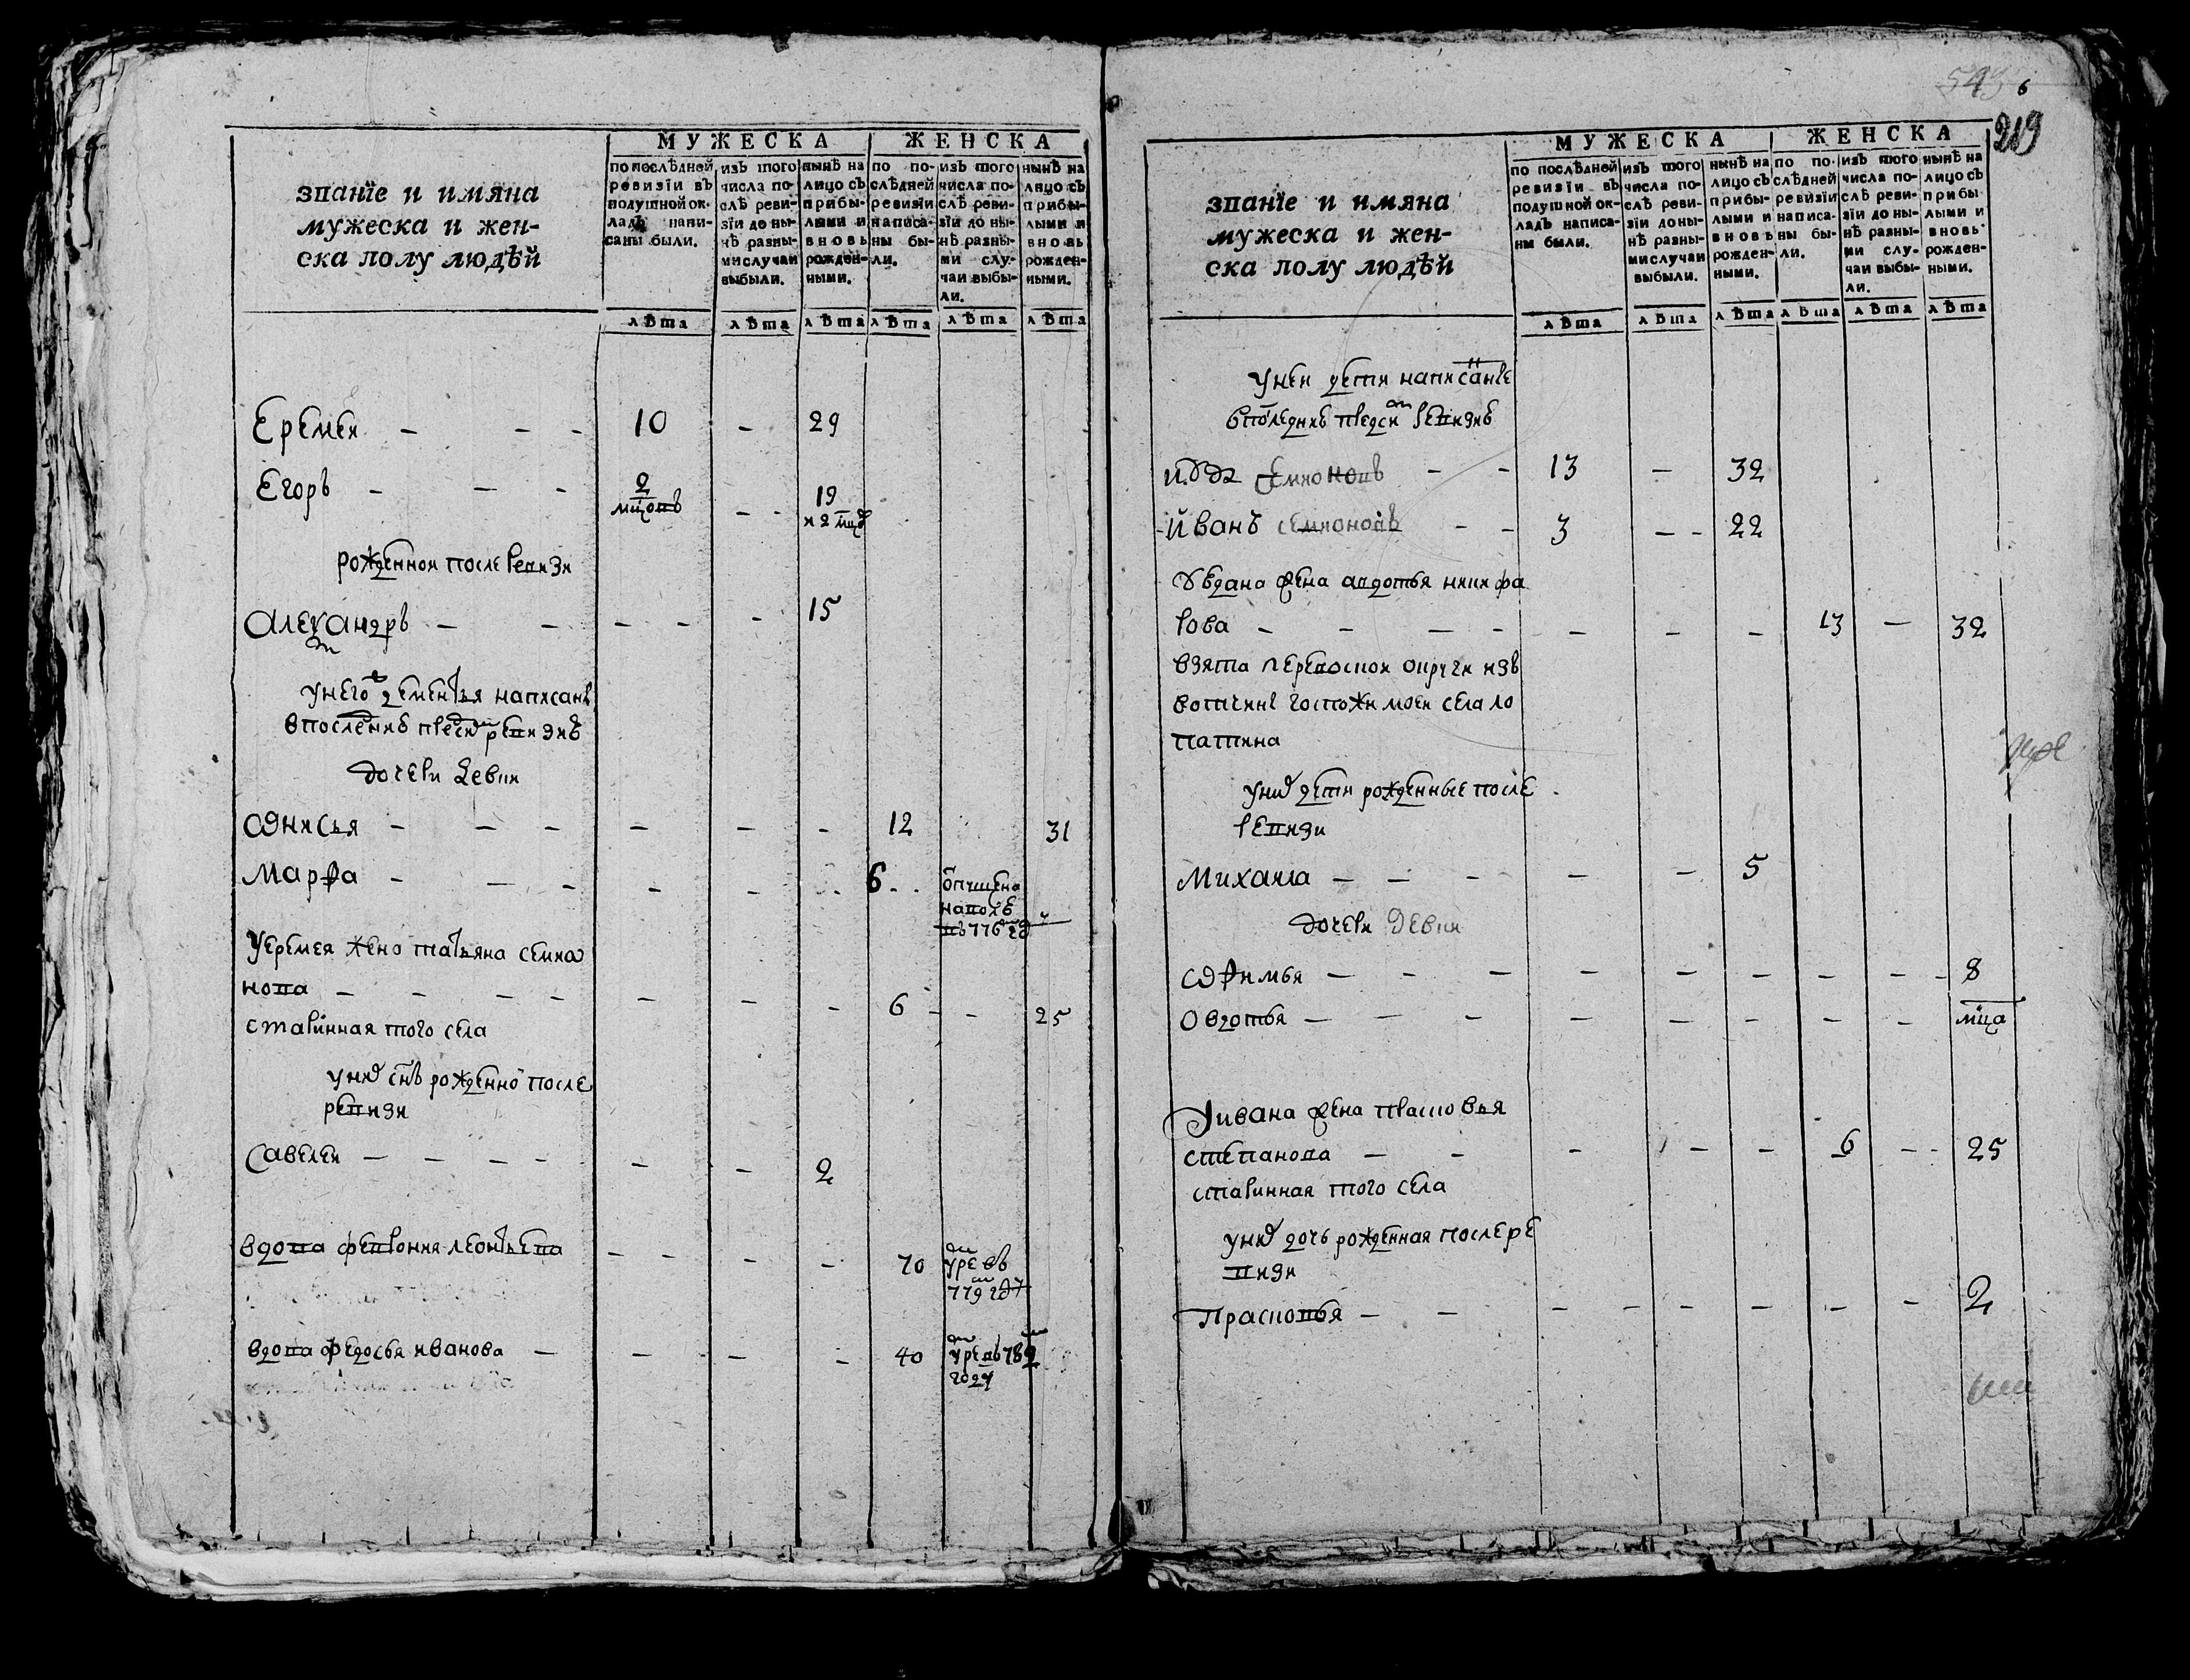 званїе и имяна
мужеска и жен-
ска полу людѣй
МУЖЕСКА
ЖЕНСКА
по послѣдней ревизїи въ подушной окладъ написаны были.
изъ того числа послѣ ревизїи до нынѣ разными случаи выбыли.
нынѣ на лицо съ прибылыми и вновь рожденными.
по послѣдней ревизїи написаны были.
изъ того числа послѣ ревизїи до нынѣ разными случаи выбыли.
нынѣ на лицо съ прибылыми и вновь рожденными.
лѣта лѣта лѣта лѣта лѣта лѣта
Еремеи — — — 10 — 29
Егоръ — — — 2 мцовъ — — 19 и 2 мцо
рожденнои после ревизи
Алекандръ — — — — — 15
у него дементья написанъ
в последнеѣ пред сеи ревизиѣ
дочери девки
Онисья — — — — — — 12 31
Марфа — — — — — 6 отпущена на волю въ 776 году
У еремея жена татьяна семио
нова — — — — — — — 6 — — 25
старинная того села
у них снъ рожденно после
ревизи
Савелеи — — — — — — 2
вдова феврония леонтьева — — — — 70 умре въ 779 году
вдова федосья иванова — — — — 40 умре въ 782 году
549 6
219
званїе и имяна
мужеска и жен-
ска полу людѣй
МУЖЕСКА
ЖЕНСКА
по послѣдней ревизїи въ подушной окладъ написаны были.
изъ того числа послѣ ревизїи до нынѣ разными случаи выбыли.
нынѣ на лицо съ прибылыми и вновь рожденными.
по послѣдней ревизїи написаны были.
изъ того числа послѣ ревизїи до нынѣ разными случаи выбыли.
нынѣ на лицо съ прибылыми и вновь рожденными.
лѣта лѣта лѣта лѣта лѣта лѣта
у неи дети написание
в последнеѣ пред сеи ревизиѣ
семионовъ — — 13 — 32
Иванъ семионовъ — — 3 — — 22
жена авдотья никифо
рова — — — — — — — 13 — 32
взята
вотчины госпожи моеи села ло
патина
у них дети рожденные после
ревизи
Михаила — — — — — 5
дочери девки
Офимья — — — — — — — — — 8
Овдотья — — — — — — — — мца
У ивана жена прасковья
степанова — — — — — — 6 — — 25
старинная того села
у них дочь рожденная после ре
визи
Прасковья — — — — — — — — 2